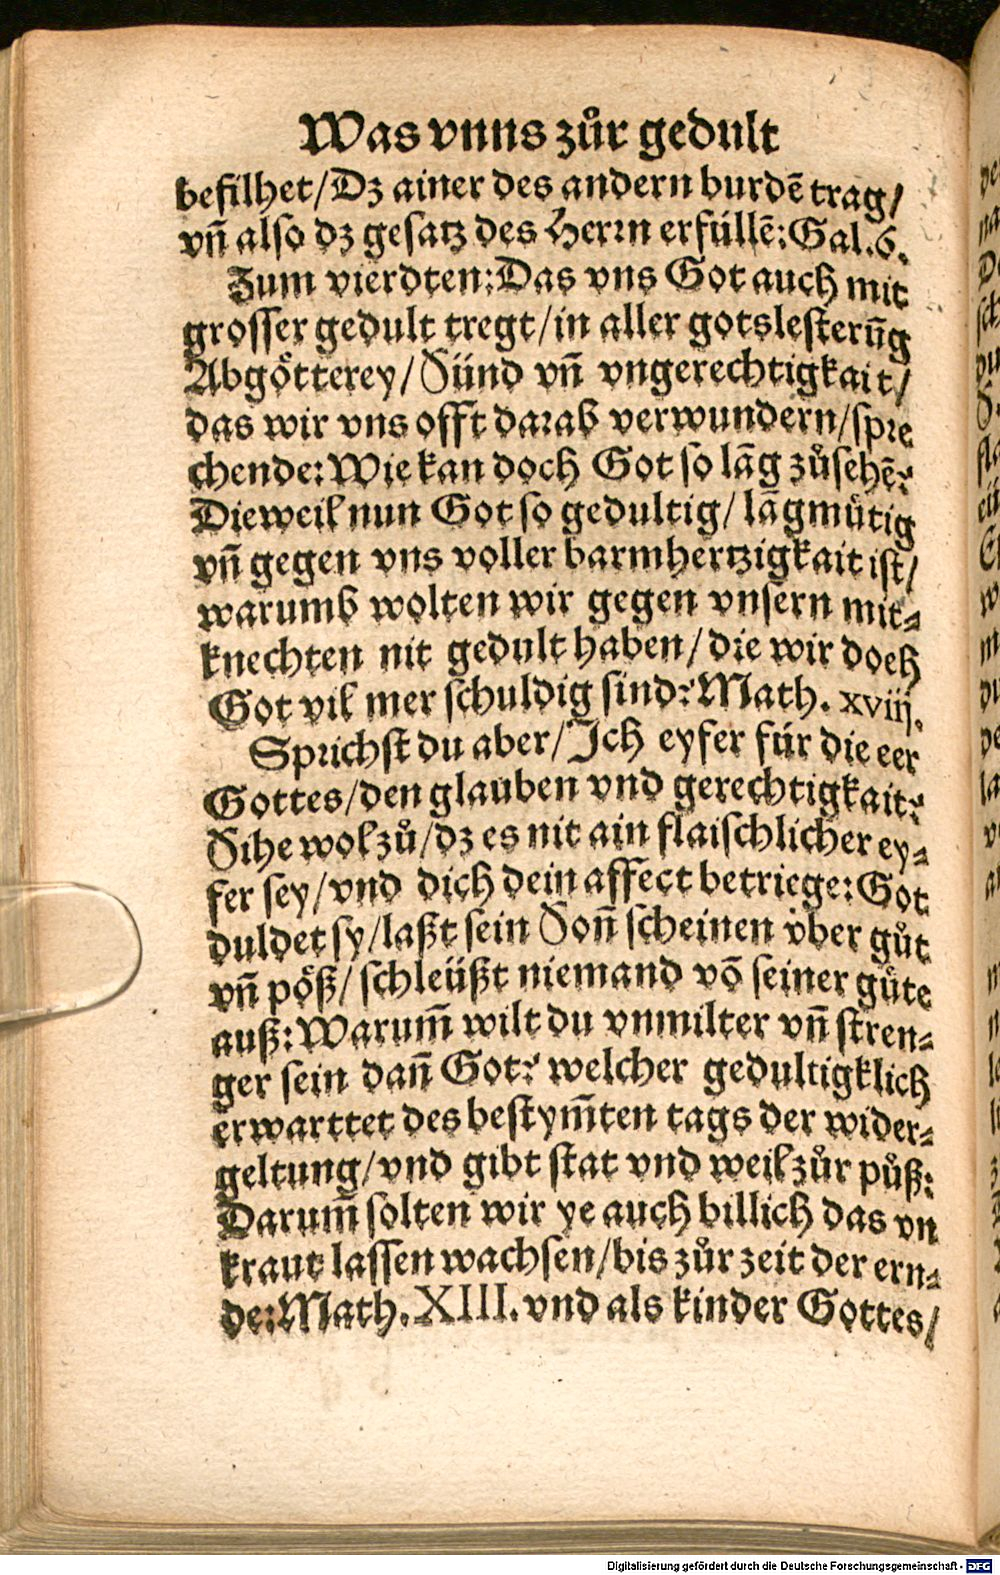 Was vnns zůr gedult
befilhet/Dz ainer des andern burdē trag/
vn̄ also dz gesatz des Herrn erfüllē: Gal.6.
Zum vierdten: Das vns Got auch mit
grosser gedult tregt/in aller gotslesterūg
Abgötterey/Sünd vn̄ vngerechtigkait/
das wir vns offt darab verwundern/spre
chende: Wie kan doch Got so lāg zůsehē?
Dieweil nun Got so gedultig/lāgmütig
vn̄ gegen vns voller barmhertzigkait ist/
warumb wolten wir gegen vnsern mit⸗
knechten nit gedult haben/die wir doch
Got vil mer schuldig sind? Math. xviij.
Sprichst du aber/Ich eyfer für die eer
Gottes/den glauben vnd gerechtigkait?
Sihe wol zů/dz es nit ain flaischlicher ey⸗
fer sey/vnd dich dein affect betriege: Got
duldet sy/laßt sein Son̄ scheinen vber gůt
vn̄ pöß/schleüßt niemand vō seiner güte
auß: Warum̄ wilt du vnmilter vn̄ stren⸗
ger sein dan̄ Got? welcher gedultigklich
erwarttet des bestym̄ten tags der wider⸗
geltung/vnd gibt stat vnd weil zůr půß:
Darum̄ solten wir ye auch billich das vn
kraut lassen wachsen/bis zůr zeit der ern⸗
de: Math. XIII. vnd als kinder Gottes/
Digitalisierung gefördert durch die Deutsche Forschungsgemeinschaft - DFG